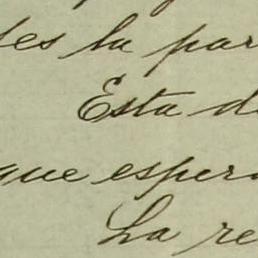 les la par
Esta d
que espera
La re